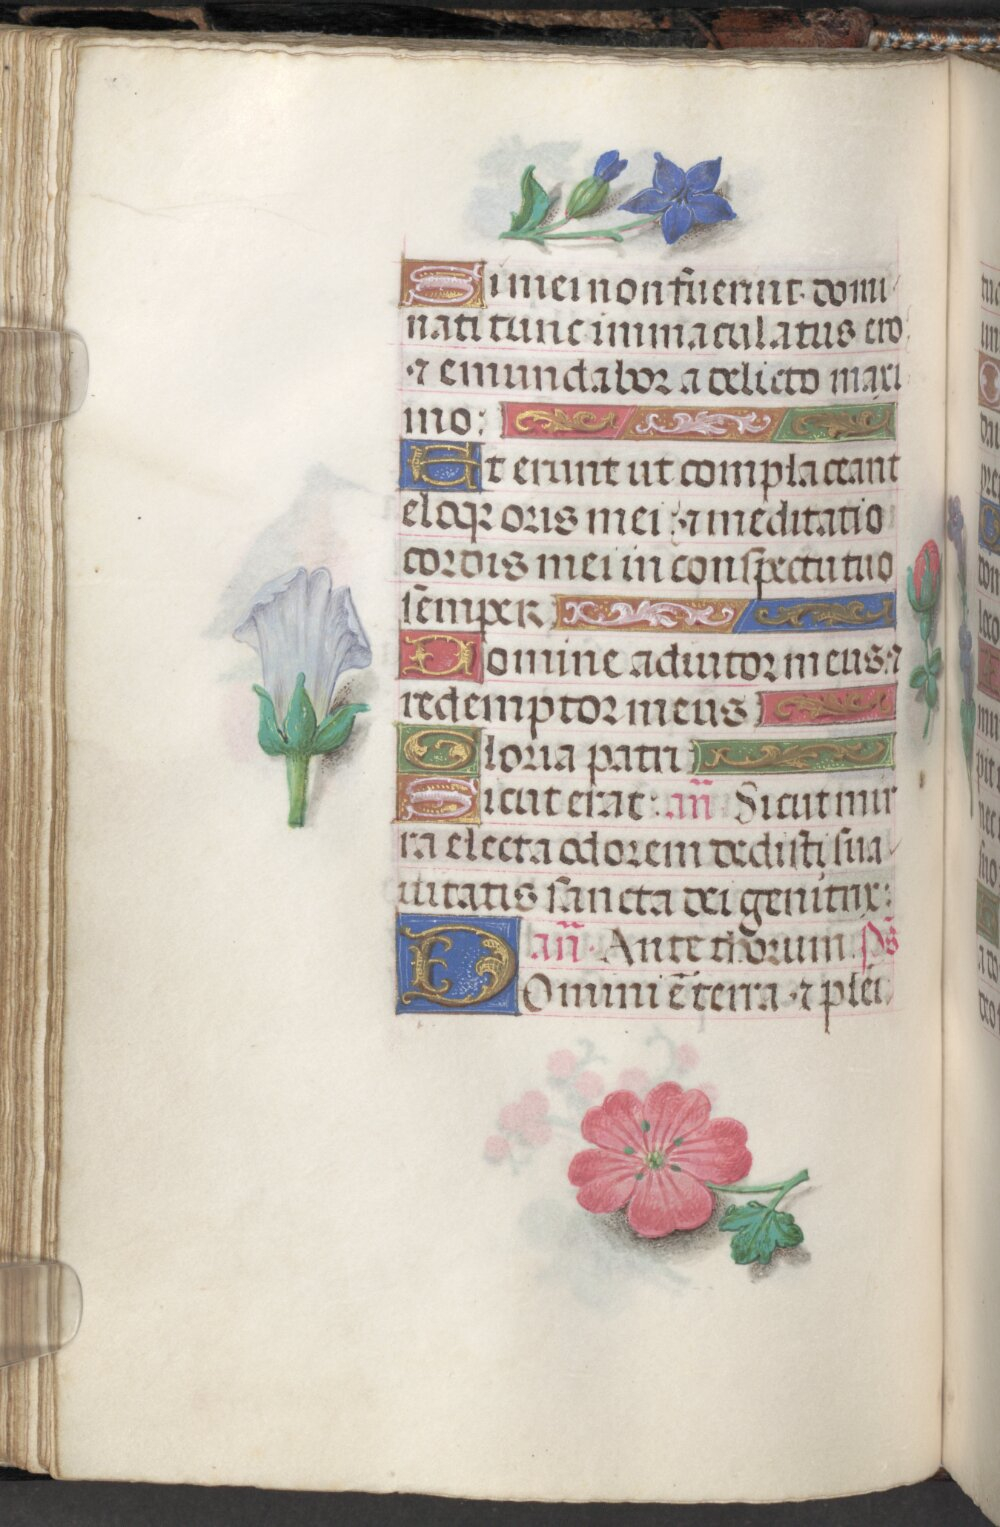 Si mei non fuerint domi
nati tunc immaculatus ero
⁊ emundabor a delicto maxi
mo:
Et erunt ut complaceant
eloq̃ oris mei: ⁊ meditatio
cordis mei in conspectu tuo
semper
Domine adiutor meus: ⁊
redemptor meus
Gloria patri
Sicut erat: añ Sicut mir
ra electa odorem dedisti sua
uitatis sancta dei genitrix:
añ. Ante thorum. Ps̃
Domini ẽ terra ⁊ plei